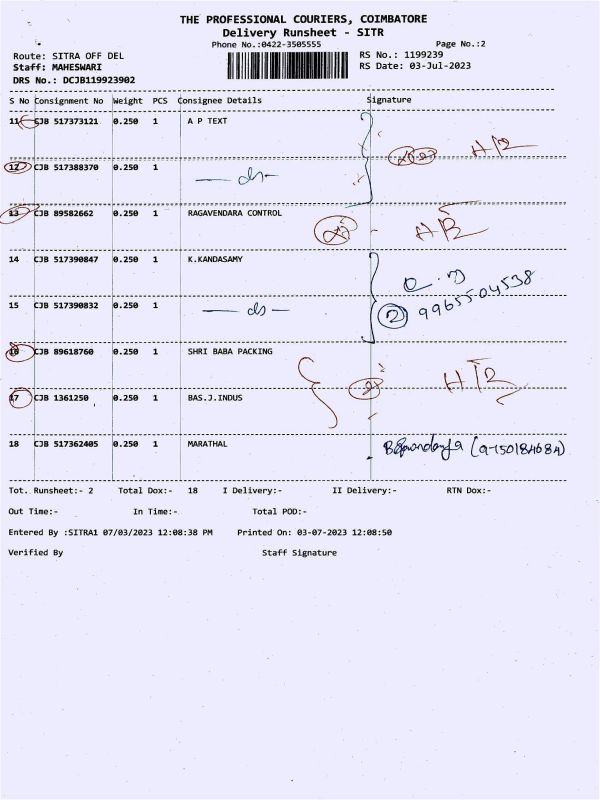 THE PROFESSIONAL COURIERS, COIMBATORE
Delivery Runsheet - SITR
Phone No.:0422-3505555 Page No.:2
Route: SITRA OFF DEL RS No.: 1199239
Staff: MAHESWARI RS Date: 03-Jul-2023
DRS No.: DCJB119923902
S No Consignment No Weight PCS Consignee Details Signature
11 CJB 517373121 0.250 1 A P TEXT
12 CJB 517388370 0.250 1 — ds —
13 CJB 89582662 0.250 1 RAGAVENDARA CONTROL
14 CJB 517390847 0.250 1 K.KANDASAMY
15 CJB 517390832 0.250 1 — ds — 2 9965504538
16 CJB 89618760 0.250 1 SHRI BABA PACKING
17 CJB 1361250 0.250 1 BAS.J.INDUS
18 CJB 517362405 0.250 1 MARATHAL
Tot. Runsheet:- 2 Total Dox:- 18 I Delivery:- II Delivery:- RTN Dox:-
Out Time:- In Time:- Total POD:-
Entered By :SITRA1 07/03/2023 12:08:38 PM Printed On: 03-07-2023 12:08:50
Verified By Staff Signature